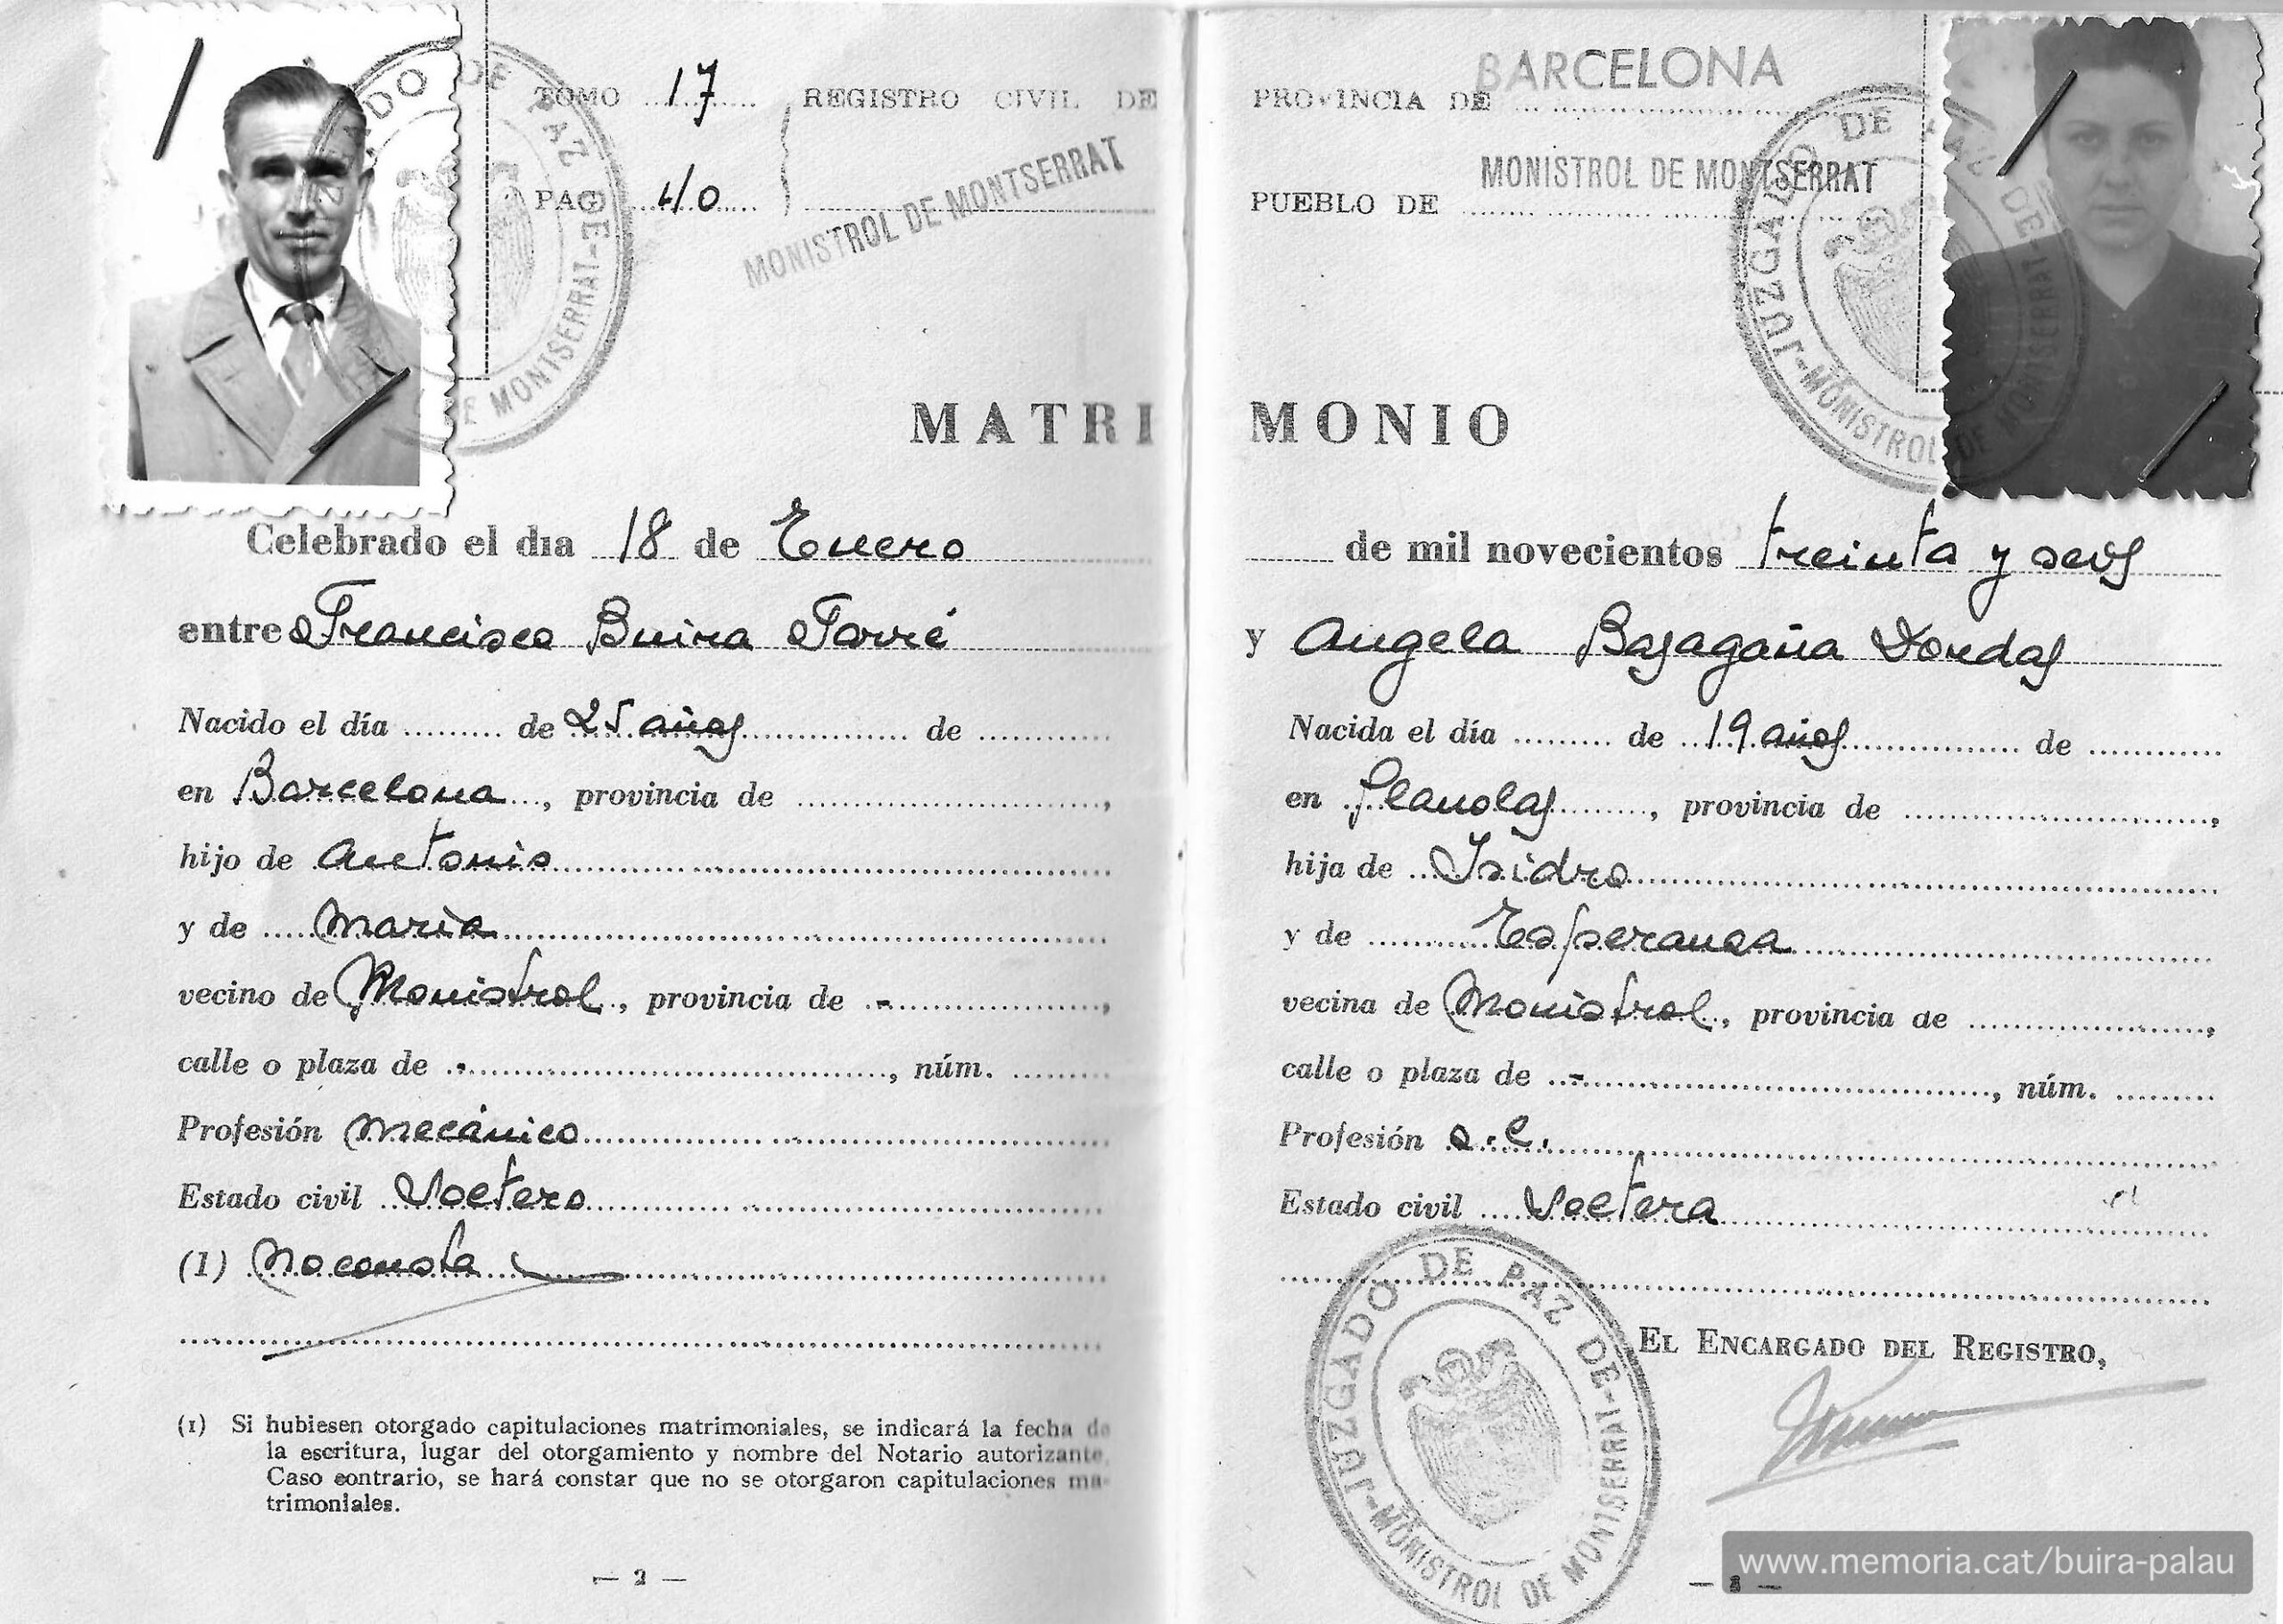 TOMO 17 REGISTRO CIVIL DE
PAG 40
MONISTROL DE MONTSERRAT
JUZGADO DE PAZ DE MONISTROL DE MONTSERRAT
MATRI
Celebrado el dia 18 de Enero
entre Francisco Buira Torré
Nacido el día ......... de 25 años ............... de ............
en Barcelona ..., provincia de ..........................,
hijo de Antonio
y de Maria
vecino de Monistrol, provincia de -
calle o plaza de -, núm. .........
Profesión mecánico
Estado civil Soltero
(1) No consta
(1) Si hubiesen otorgado capitulaciones matrimoniales, se indicará la fecha de
la escritura, lugar del otorgamiento y nombre del Notario autorizante.
Caso contrario, se hará constar que no se otorgaron capitulaciones ma-
trimoniales.
— 2 —
PROVINCIA DE BARCELONA
PUEBLO DE MONISTROL DE MONTSERRAT
JUZGADO DE PAZ DE MONISTROL DE MONTSERRAT
MONIO
de mil novecientos treinta y seis
y Angela Basagaña Dordas
Nacida el día ......... de 19 años ............... de ............
en Planolas, provincia de ..........................,
hija de Isidro
y de Esperanza
vecina de Monistrol, provincia de ......................,
calle o plaza de -, núm. .........
Profesión s.l.
Estado civil Soltera
EL ENCARGADO DEL REGISTRO,
JUZGADO DE PAZ DE MONISTROL DE MONTSERRAT
www.memoria.cat/buira-palau